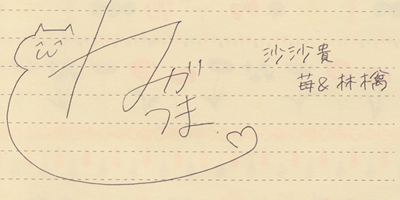 がつま
沙沙貴
苺&林檎